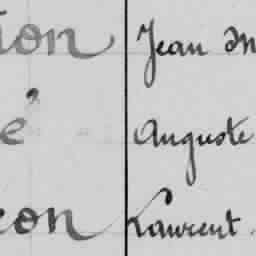 ion Jean M
é Auguste
eon Laurent.